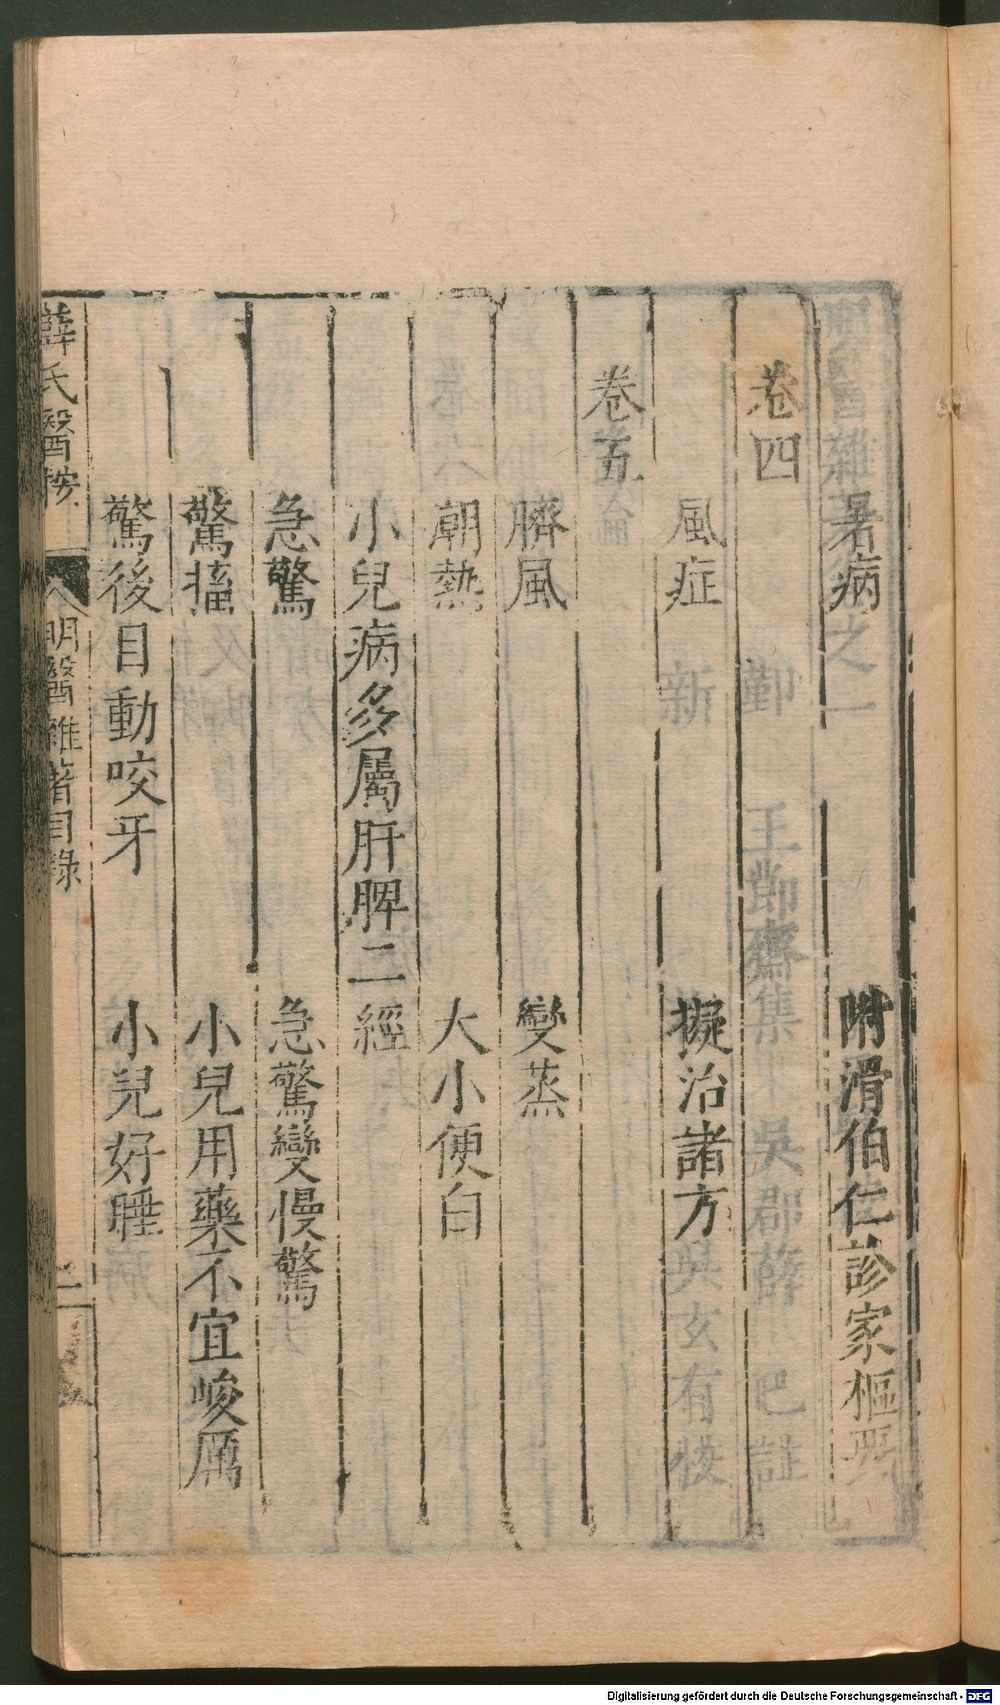 暑病　附滑伯仁診家樞要
卷四
風症　擬治諸方
卷五
臍風　變蒸
潮熱　大小便白
小兒病多屬肝脾二經
急驚　急驚變慢驚
驚搐　小兒用藥不宜峻厲
驚後目動咬牙　小兒好睡
薛氏醫按　明醫雜著目錄　二
Digitalisierung gefördert durch die Deutsche Forschungsgemeinschaft - DFG